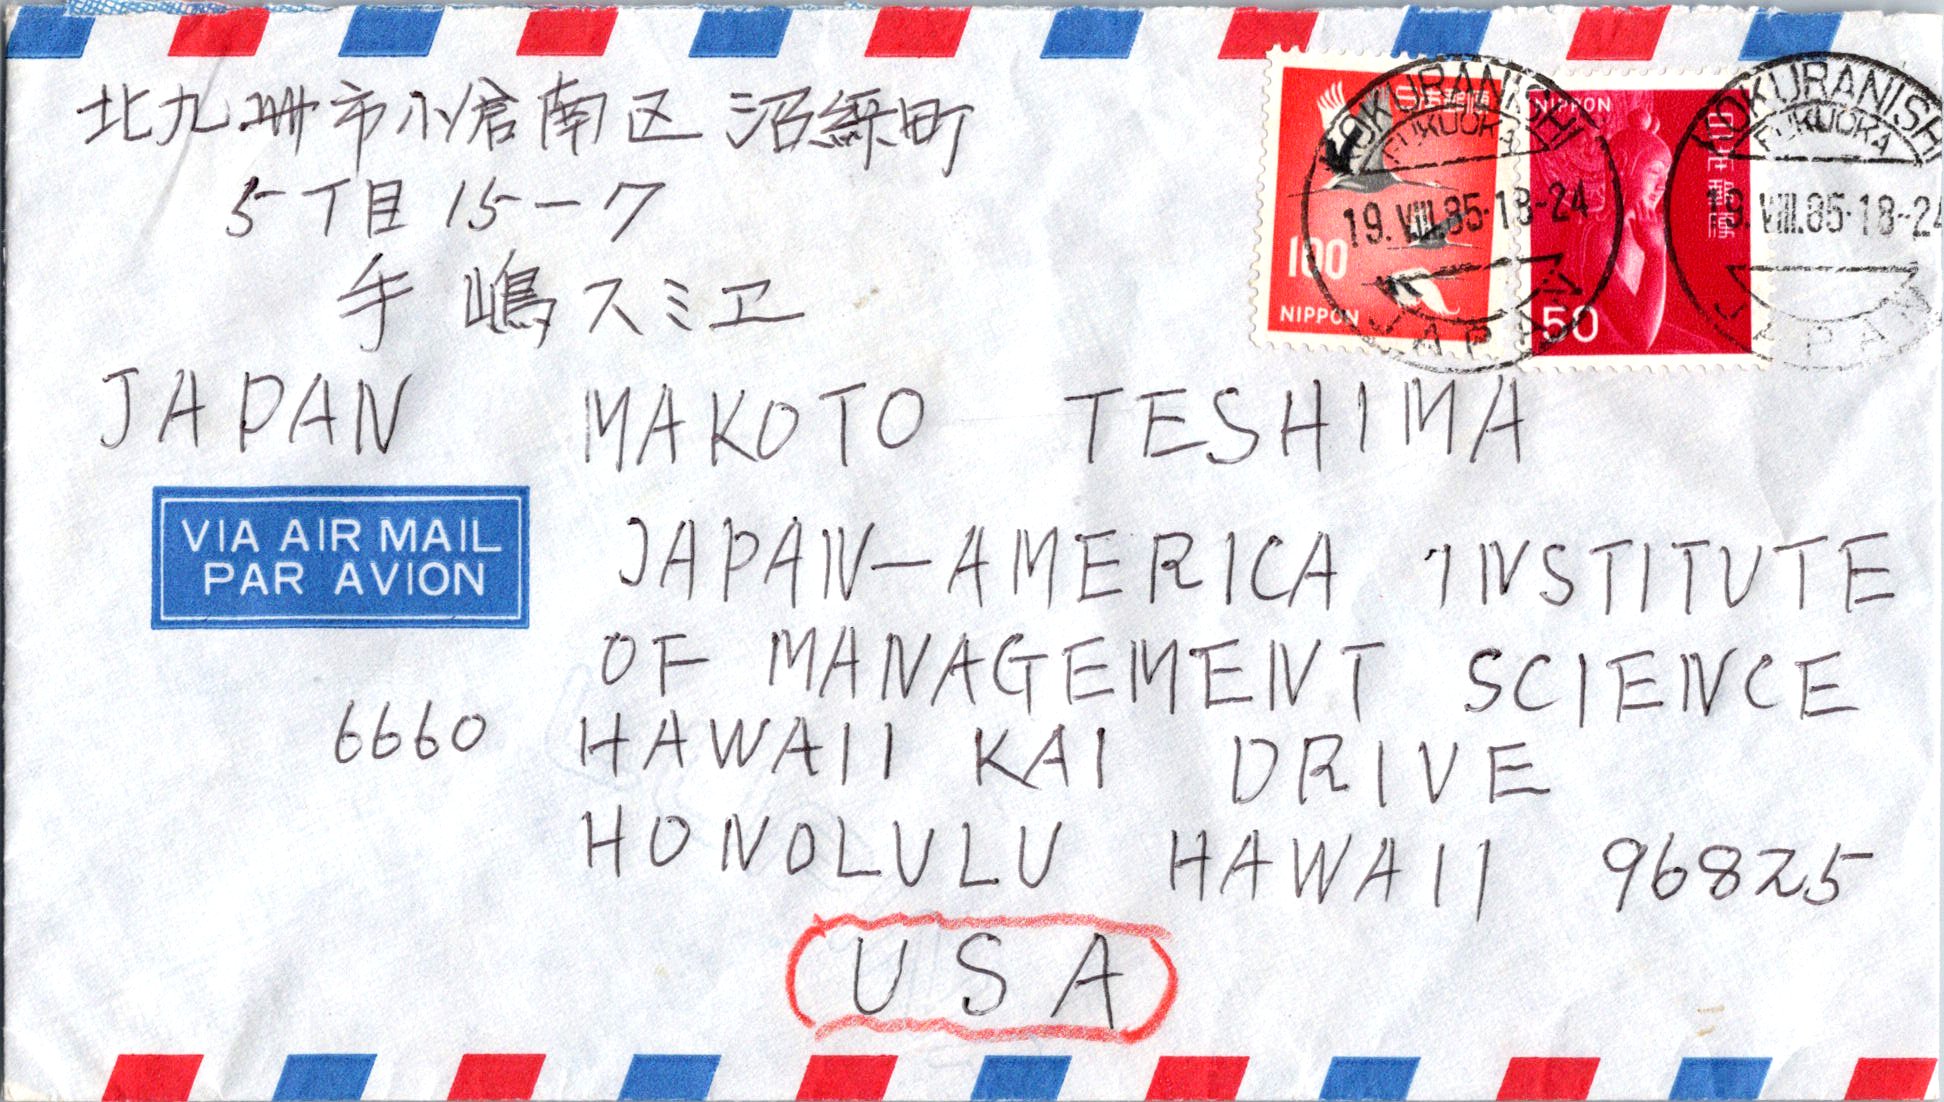 北九州市小倉南区沼緑町
5丁目15-7
手嶋スミエ
JAPAN
日本郵便
100
NIPPON
NIPPON
日本郵便
50
KOKURANISHI
FUKUOKA
19.VIII.85.18-24
JAPAN
KOKURANISHI
FUKUOKA
19.VIII.85.18-24
JAPAN
MAKOTO TESHIMA
VIA AIR MAIL
PAR AVION
JAPAN-AMERICA INSTITUTE
OF MANAGEMENT SCIENCE
6660 HAWAII KAI DRIVE
HONOLULU HAWAII 96825
USA